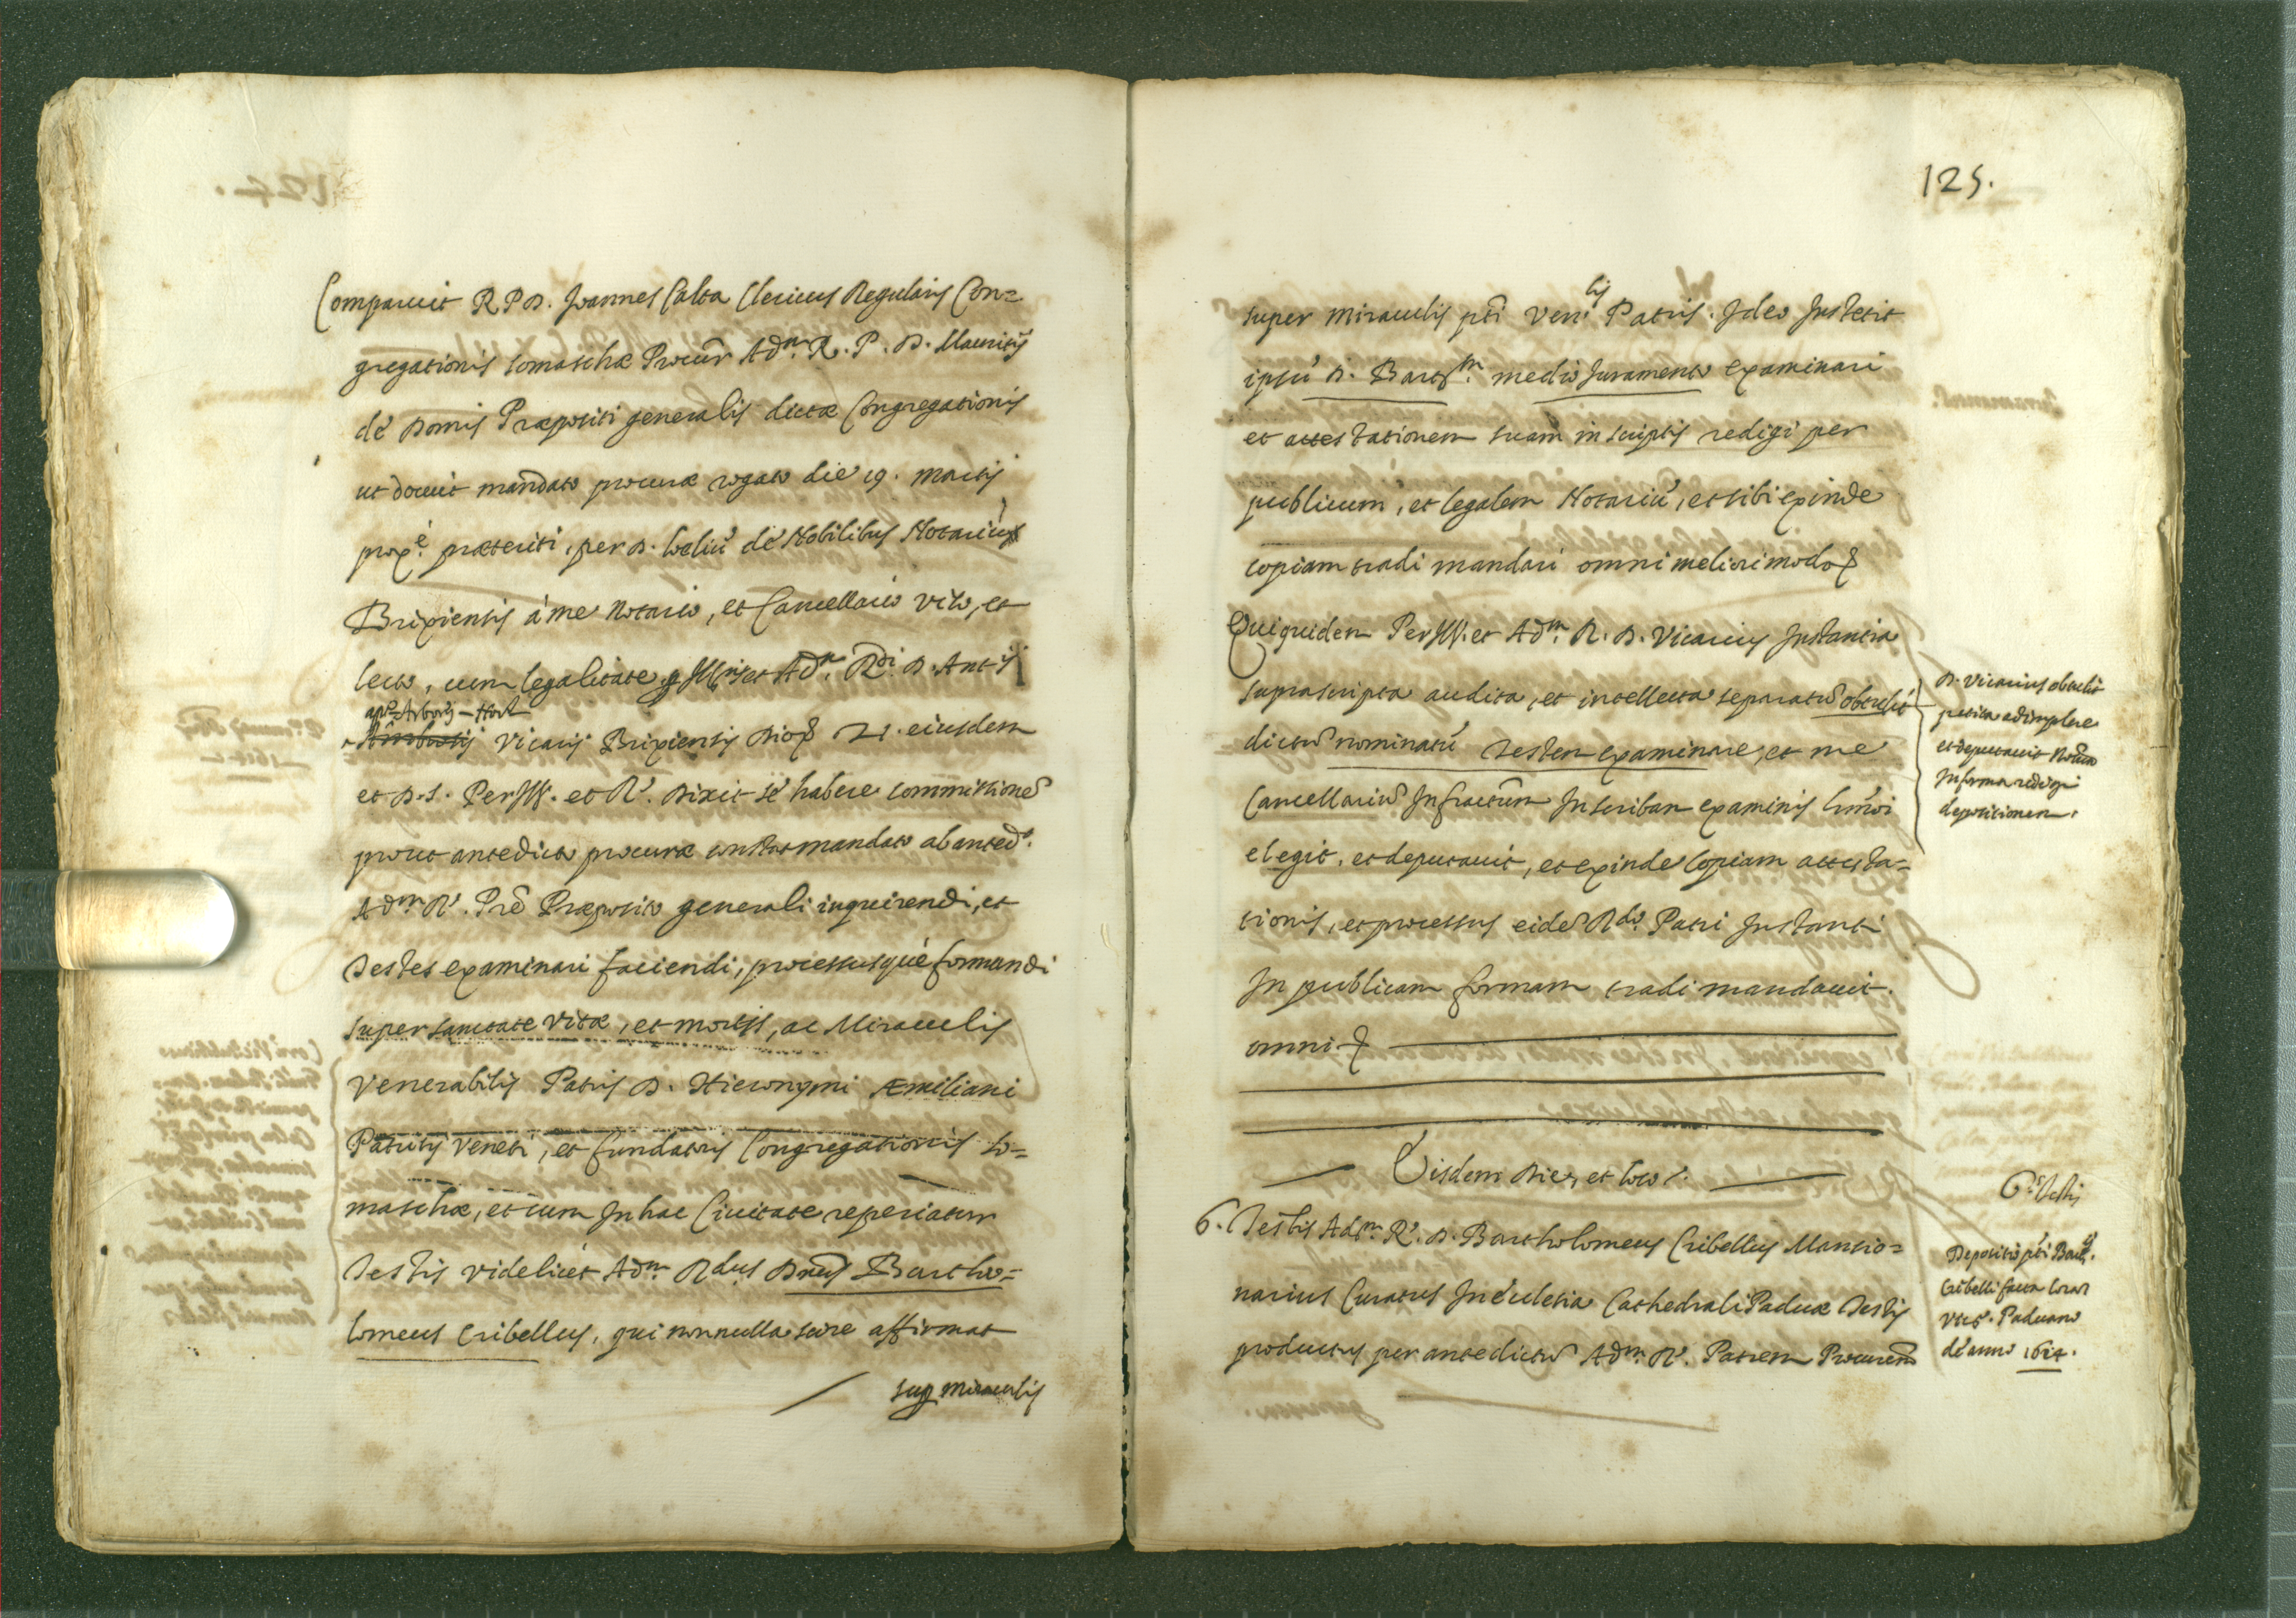 Comparuit R. P. D. Joannes Calta Clericus Regularis Con=
gregationis Somaschæ Procur. Adm. R. P. D. Mauritij
de Domis Præpositi generalis dictæ Congregationis
ut docuit mandato procuræ rogato die 19. Martij
prox.e præteriti, per D. Lælium de Nobilibus Notarium
Brixiensis à me Notario, et Cancellario viso, et
lecto, cum legalitate Ill. et Adm. Rdi. D. Antij
Vicarij Brixiensis Dioc. 21. eiusdem
et D. S. Perill. et R. Dixit se habere commissione
prout antedicto procuræ constat mandato ab anted.
Adm. R. Pre Præposito generali inquirendi, et
Testes examinari faciendi, processusque formandi
super sanctate vitæ, et morib, ac Miraculis
Venerabilis Patris D. Hieronymi Æmiliani
Patritij Veneti, et fundatoris Congregationis So=
maschæ, et cum In hac Civitate reperiatur
Testis videlicet Adm. Rdus Dnus Bartho=
lomeus Cribellus, qui nonnulla scire affirmat
sup Miraculis
125.
super Miraculis pti Ven.lis Patris. Ideo Institit
ipsu D. Barth.m medio Iuramento examinari
et attestationem suam in scriptis redigi per
publicum, et legalem Notariu, et sibi exinde
copiam tradi mandari omni meliori modo &
Qui quidem Perill. et Adm. R. D. Vicarius Instantia
suprascripta audita, et intellecta separatu obtulit
dictu nominatu Testem examinare, et me
Cancellariu Infractum In scriban examinis hmoi
elegit, et deputavit, et exinde copiam attesta=
tionis, et processus eide Rdo. Patri Instanti
In publicam formam tradi mandavit.
omni &
D. Vicarius obtulit
petita adimplere
et deputavit Notm
In forma redigi
depositionem.
Eisdem Die, et loco.
6.s Testis
6. Testis Adm. R. D. Bartholomeus Cribellus Mansio=
narius Curatus In Ecclesia Cathedrali Paduæ Testis
productus per antedictu Adm. R. Patrem Procurem
Depositio pti Barth.
Cribelli facta coram
Vic. Paduano
de anno 1614.